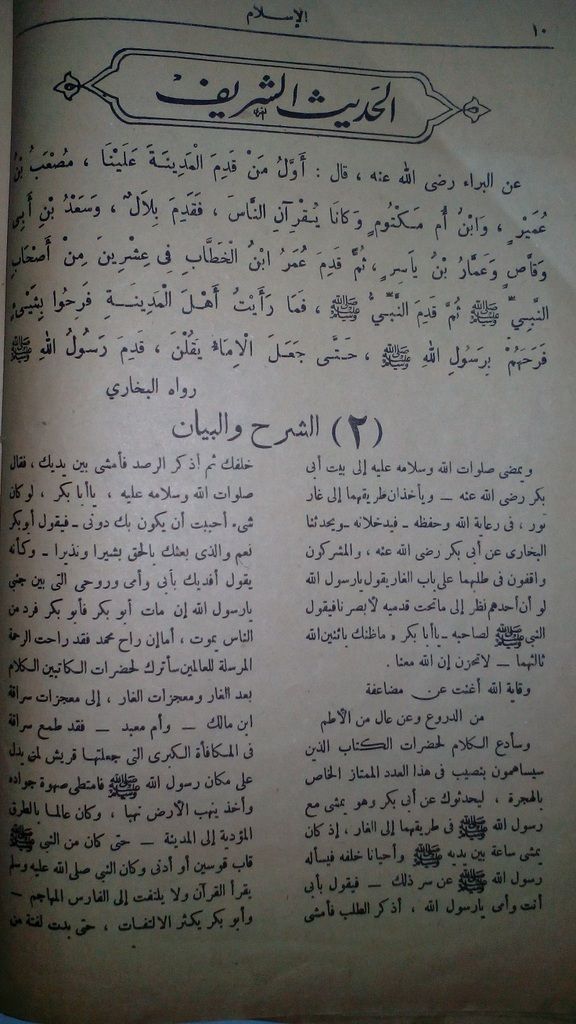 ١٠
الإسلام
الحديث الشريف
عن البراء رضى الله عنه ، قال : أَوَّلُ مَنْ قَدِمَ الْمَدِينَةَ عَلَيْنَا ، مُصْعَبُ بْنُ
عُمَيْرٍ ، وَابْنُ أُم مَكْتُومٍ وَكَانَا يُقْرِآنِ النَّاسَ ، فَقَدِمَ بِلَالٌ ، وَسَعْدُ بْنِ أَبِى
وَقَّاصٍ وَعَمَّارُ بْنُ يَاسِرٍ ، ثُمَّ قَدِمَ عُمَرُ ابْنُ الْخَطَّابِ فِى عِشْرِينَ مِنْ أَصْحَابِ
النَّبِيِّ ﷺ ثُمَّ قَدِمَ النَّبِيُّ ﷺ ، فَمَا رَأَيْتُ أَهْلَ الْمَدِينَةِ فَرِحُوا بِشَيْءٍ
فَرَحَهُمْ بِرَسُولِ اللهِ ﷺ ، حَتَّى جَعَلَ الْإِمَاءُ يَقُلْنَ ، قَدِمَ رَسُولُ اللهِ ﷺ
رواه البخاري
(٢) الشرح والبيان
ويمضى صلوات الله وسلامه عليه إلى بيت أبى
بكر رضى الله عنه — ويأخذان طريقهما إلى غار
ثور ، فى رعاية الله وحفظه - فيدخلانه - ويحدثنا
البخارى عن أبى بكر رضى الله عنه ، والمشركون
واقفون فى طلبهما على باب الغار يقول يارسول الله
لو أن أحدهم نظر إلى ماتحت قدميه لأبصرنا فيقول
النبي ﷺ لصاحبه - ياأبا بكر ، ماظنك باثنين الله
ثالثهما — لاتحزن إن الله معنا .
وقاية الله أغنت عن مضاعفة
من الدروع وعن عال من الأطم
وسأدع الكلام لحضرات الكتاب الذين
سيساهمون بنصيب فى هذا العدد الممتاز الخاص
بالهجرة ، ليحدثوك عن أبى بكر وهو يمشى مع
رسول الله ﷺ فى طريقهما إلى الغار ، إذ كان
يمشى ساعة بين يديه ﷺ وأحيانا خلفه فيسأله
رسول الله ﷺ عن سر ذلك — فيقول بأبى
أنت وأمى يارسول الله ، أذكر الطلب فأمشى
خلفك ثم أذكر الرصد فأمشى بين يديك ، فقال
صلوات الله وسلامه عليه ، ياأبا بكر ، لو كان
شىء أحببت أن يكون بك دونى - فيقول أبوبكر
نعم والذى بعثك بالحق بشيرا ونذيرا - وكأنه
يقول أفديك بأبى وأمى وروحى التى بين جنبى
يارسول الله إن مات أبو بكر فأبو بكر فرد من
الناس يموت ، أما إن راح محمد فقد راحت الرحمة
المرسلة للعالمين سأترك لحضرات الكاتبين الكلام
بعد الغار ومعجزات الغار ، إلى معجزات سراقة
ابن مالك — وأم معبد — فقد طمع سراقة
فى المكافأة الكبرى التى جعلتها قريش لمن يدل
على مكان رسول الله ﷺ فامتطى صهوة جواده
وأخذ ينهب الأرض نهبا ، وكان عالما بالطرق
المؤدية إلى المدينة — حتى كان من النبى ﷺ
قاب قوسين أو أدنى وكان النبي صلى الله عليه وسلم
يقرأ القرآن ولا يلتفت إلى الفارس المهاجم —
وأبو بكر يكثر الالتفات ، حتى بدت لفتة من